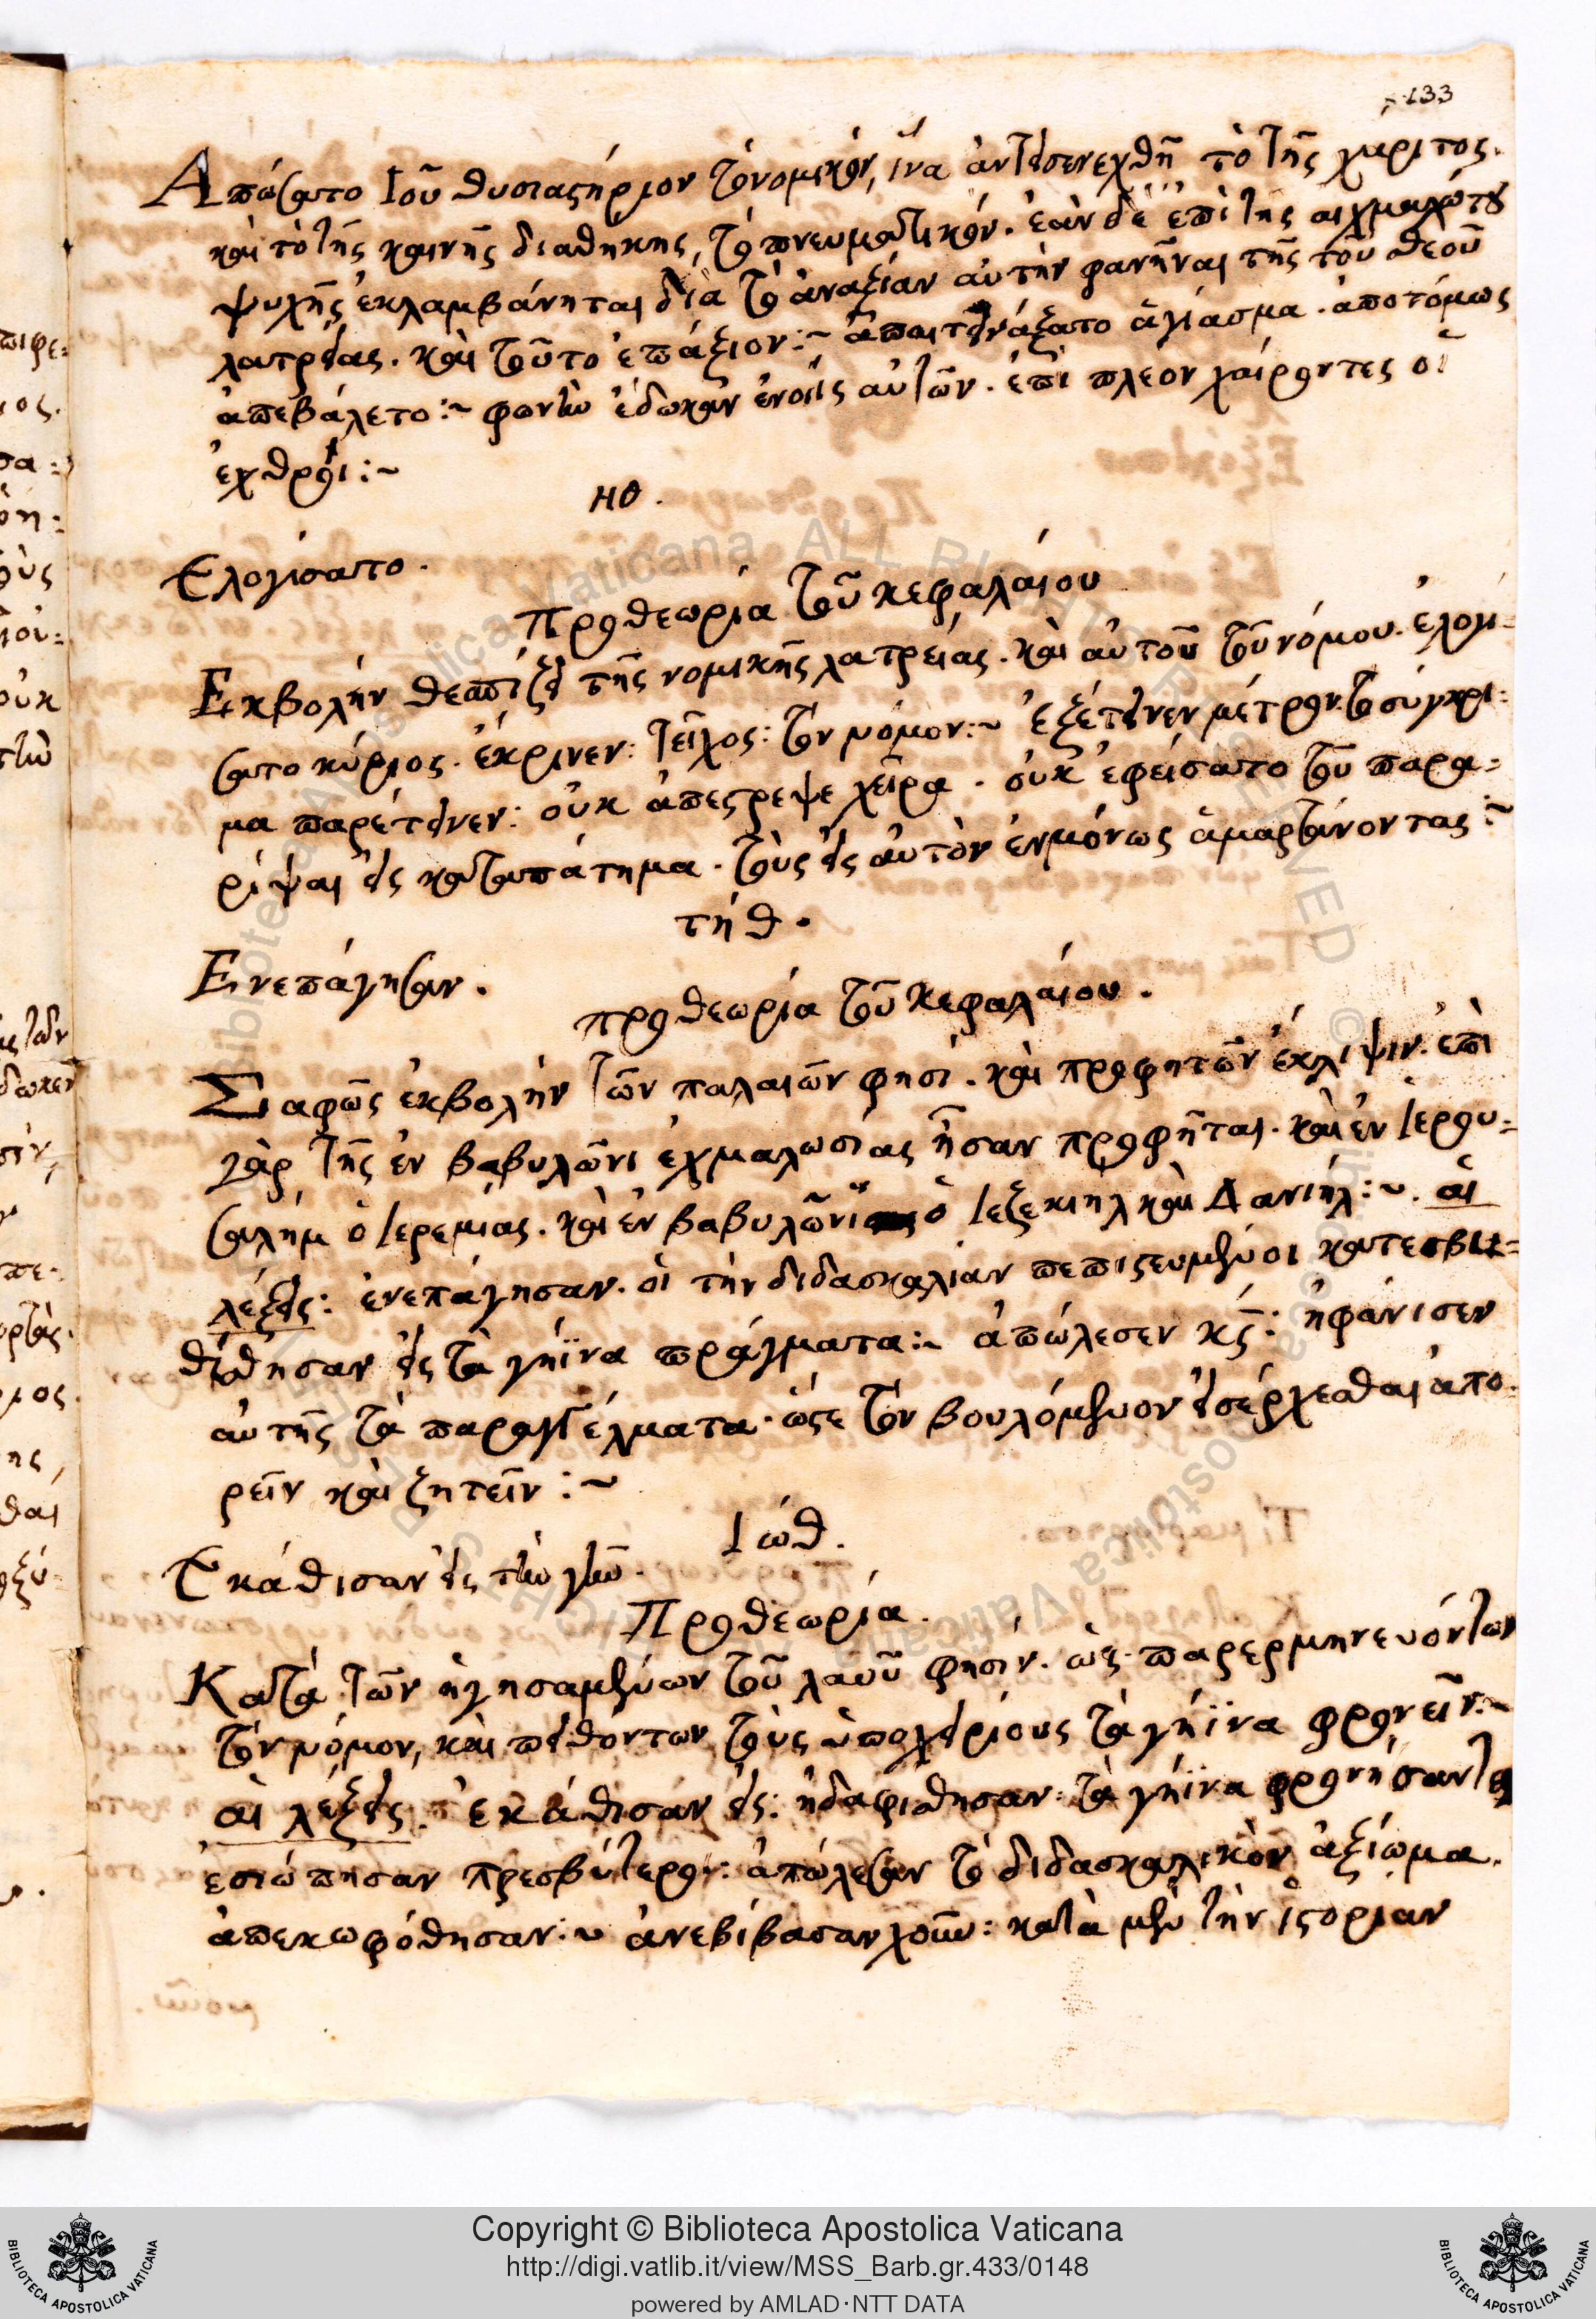 133
Ἀπώσατο τοῦ θυσιαστήριον τὸ νομικὸν, ἵνα ἀντεισενεχθῆ τὸ τῆς χάριτος.
καὶ τὸ τῆς καινῆς διαθήκης, τὸ πνευματικόν. ἐὰν δὲ ἐπὶ τῆς αἰχμαλώτου
ψυχῆς ἐκλαμβάνηται διὰ τὸ ἀναξίαν αὐτὴν φανῆναι τῆς τοῦ θεοῦ
λατρείας. καὶ τοῦτο ἐπάξιον :~ ἁγίασμα. ἀποτόμως
ἀπεβάλετο :~ φωνὴν ἔδωκαν ἐν αὐτῶν. ἐπὶ πλέον χαίροντες οἱ
ἐχθροί :~
ΗΘ.
Ἐλογίσατο.
Προθεωρία τοῦ κεφαλαίου
Ἐκβολὴν θεσπίζει τῆς νομικῆς λατρείας. καὶ αὐτοῦ τοῦ νόμου. ἐλογι=
σατο κύριος. ἔκρινεν: τεῖχος: τὸν νόμον :~ ἐξέτεινεν μέτρον. τὸ σύγκρι=
μα παρέτεινεν: οὐκ ἀπέστρεψε χεῖρα. οὐκ ἐφείσατο τοῦ παρα=
ρίψαι εἰς καταπάτημα. τοὺς εἰς αὐτὸν ἐνμόνως ἁμαρτάνοντας :~
τήθ.
Ἐνεπάγησαν.
προθεωρία τοῦ κεφαλαίου.
Σαφῶς ἐκβολὴν τῶν παλαιῶν φησί. καὶ προφητῶν ἔκλιψιν. ἐπὶ
γὰρ τῆς ἐν βαβυλῶνι ἐχμαλωσίας ἦσαν προφῆται. καὶ ἐν Ιερου=
σαλήμ ὁ Ιερεμίας. καὶ ἐν βαβυλῶνι ὁ Ιεζεκιηλ καὶ Δανιήλ :~. αἱ
λέξεις: ἐνεπάγησαν. οἱ τὴν διδασκαλίαν πεπιστευμένοι κατεβι=
θίσθησαν εἰς τὰ γήϊνα πράγματα :~ ἀπώλεσεν κς̄: ἠφάνισεν
αὐτῆς τὰ παραγγέλματα. ὥστε τὸν βουλόμενον εἰσέρχεσθαι ἀπο=
ρεῖν καὶ ζητεῖν :~
Ιώθ.
Ἐκάθισαν εἰς τὴν γῆν.
Προθεωρία.
Κατὰ τῶν ἡγησαμένων τοῦ λαοῦ φησίν. ὡς παρερμηνευόντων
τὸν νόμον, καὶ πειθόντων τοὺς ὑποχειρίους τὰ γήϊνα φρονεῖν :~
αἱ λέξεις. ἐκάθισαν εἰς: ἠδαφίσθησαν: τὰ γήϊνα φρονήσαντες
ἐσιώπησαν πρεσβύτεροι: ἀπώλεσαν τὸ διδασκαλικὸν ἀξίωμα.
ἀπεκωφόθησαν :~ ἀνεβίβασαν χοῦν: κατὰ μὲν τὴν ἱστορίαν
Copyright © Biblioteca Apostolica Vaticana
http://digi.vatlib.it/view/MSS_Barb.gr.433/0148
powered by AMLAD·NTT DATA